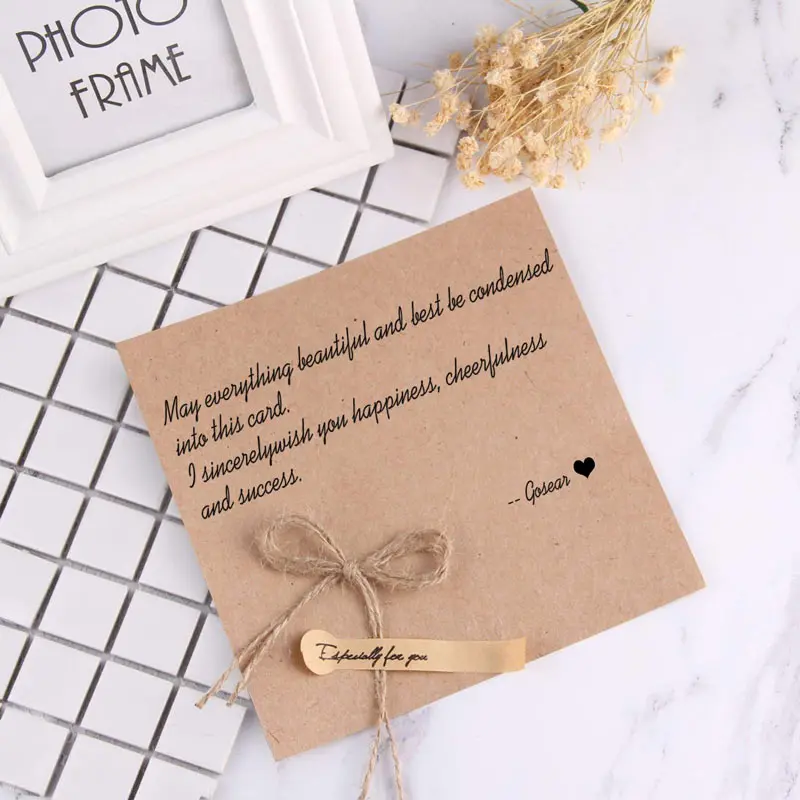 PHOTO
FRAME
May everything beautiful and best be condensed
into this card.
I sincerelywish you happiness, cheerfulness
and success.
-- Gosear
Especially for you